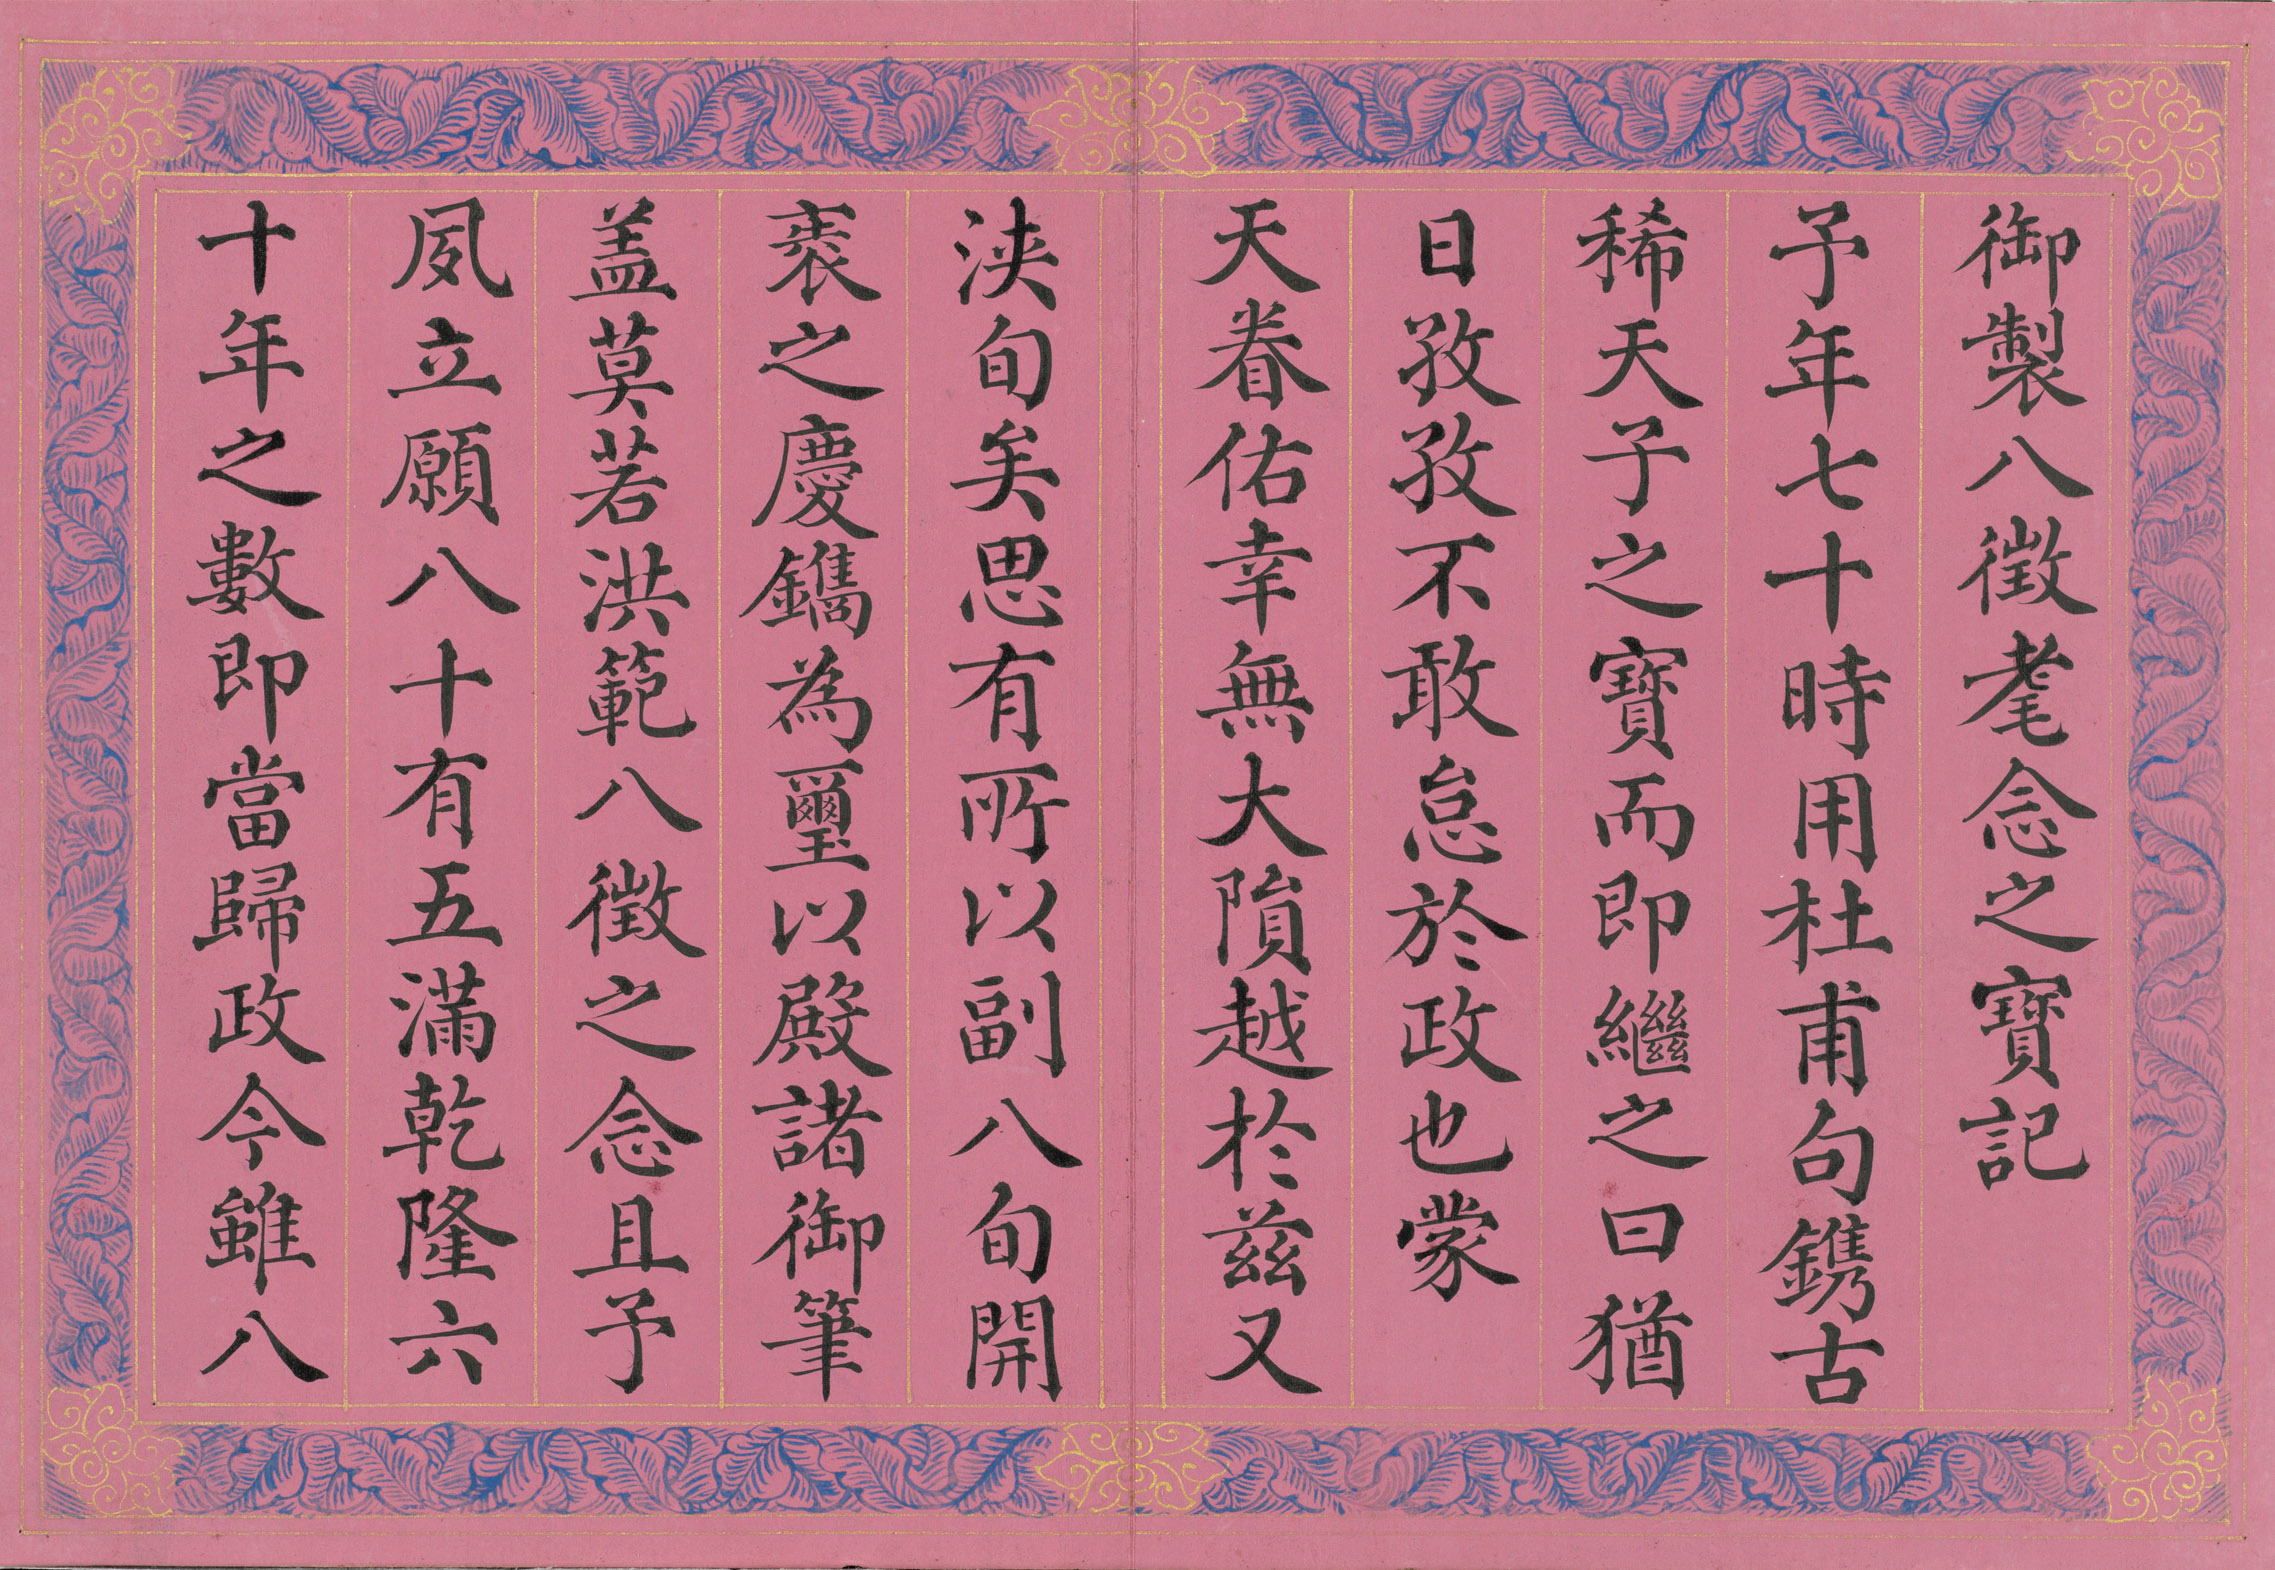 御製八徵耄念之寶記
予年七十時用杜甫句鐫古
稀天子之寶而即繼之曰猶
日孜孜不敢怠於政也蒙
天眷佑幸無大隕越於茲又
浹旬矣思有所以副八旬開
袠之慶鐫為璽以殿諸御筆
盖莫若洪範八徵之念且予
夙立願八十有五滿乾隆六
十年之數即當歸政今雖八